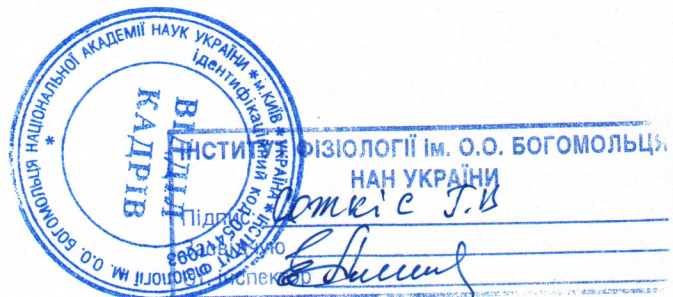 ІНСТИТУТ ФІЗІОЛОГІЇ ім. О.О. БОГОМОЛЬЦЯ НАЦІОНАЛЬНОЇ АКАДЕМІЇ НАУК УКРАЇНИ * м.КИЇВ * УКРАЇНА *
ідентифікаційний код
ВІДДІЛ
КАДРІВ
ІНСТИТУТ ФІЗІОЛОГІЇ ім. О.О. БОГОМОЛЬЦЯ
НАН УКРАЇНИ
Підпис Соткіс Г.В
Засвідчую
Ст. інспектор